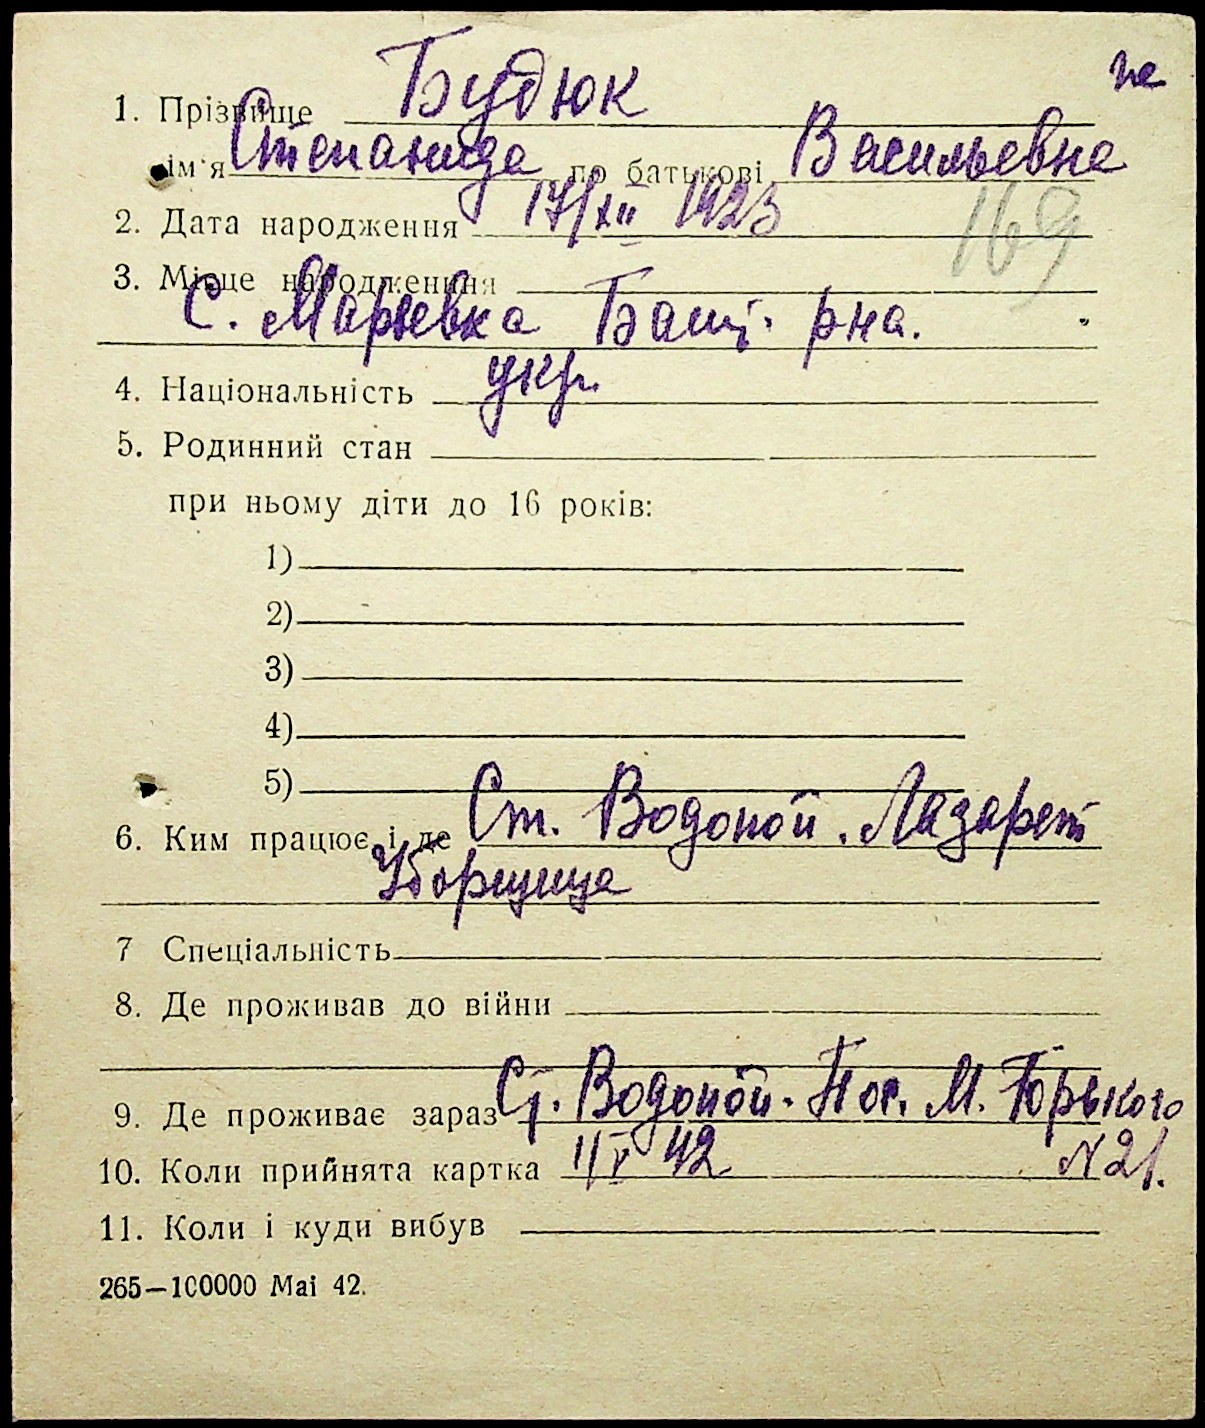 1. Прізвище Будюк
ім'я Степанида по батькові Васильевна
2. Дата народження 17/XII 1923
169
3. Місце народження
С. Марьевка Башт. рна.
4. Національність укр.
5. Родинний стан
при ньому діти до 16 років:
1)
2)
3)
4)
5)
6. Ким працює і де Ст. Водопой. Лазарет
Уборщица
7 Спеціальність
8. Де проживав до війни
9. Де проживає зараз Ст. Водопой. Пос. М. Горького
10. Коли прийнята картка 11/V 42 N 21.
11. Коли і куди вибув
265—100000 Mai 42.